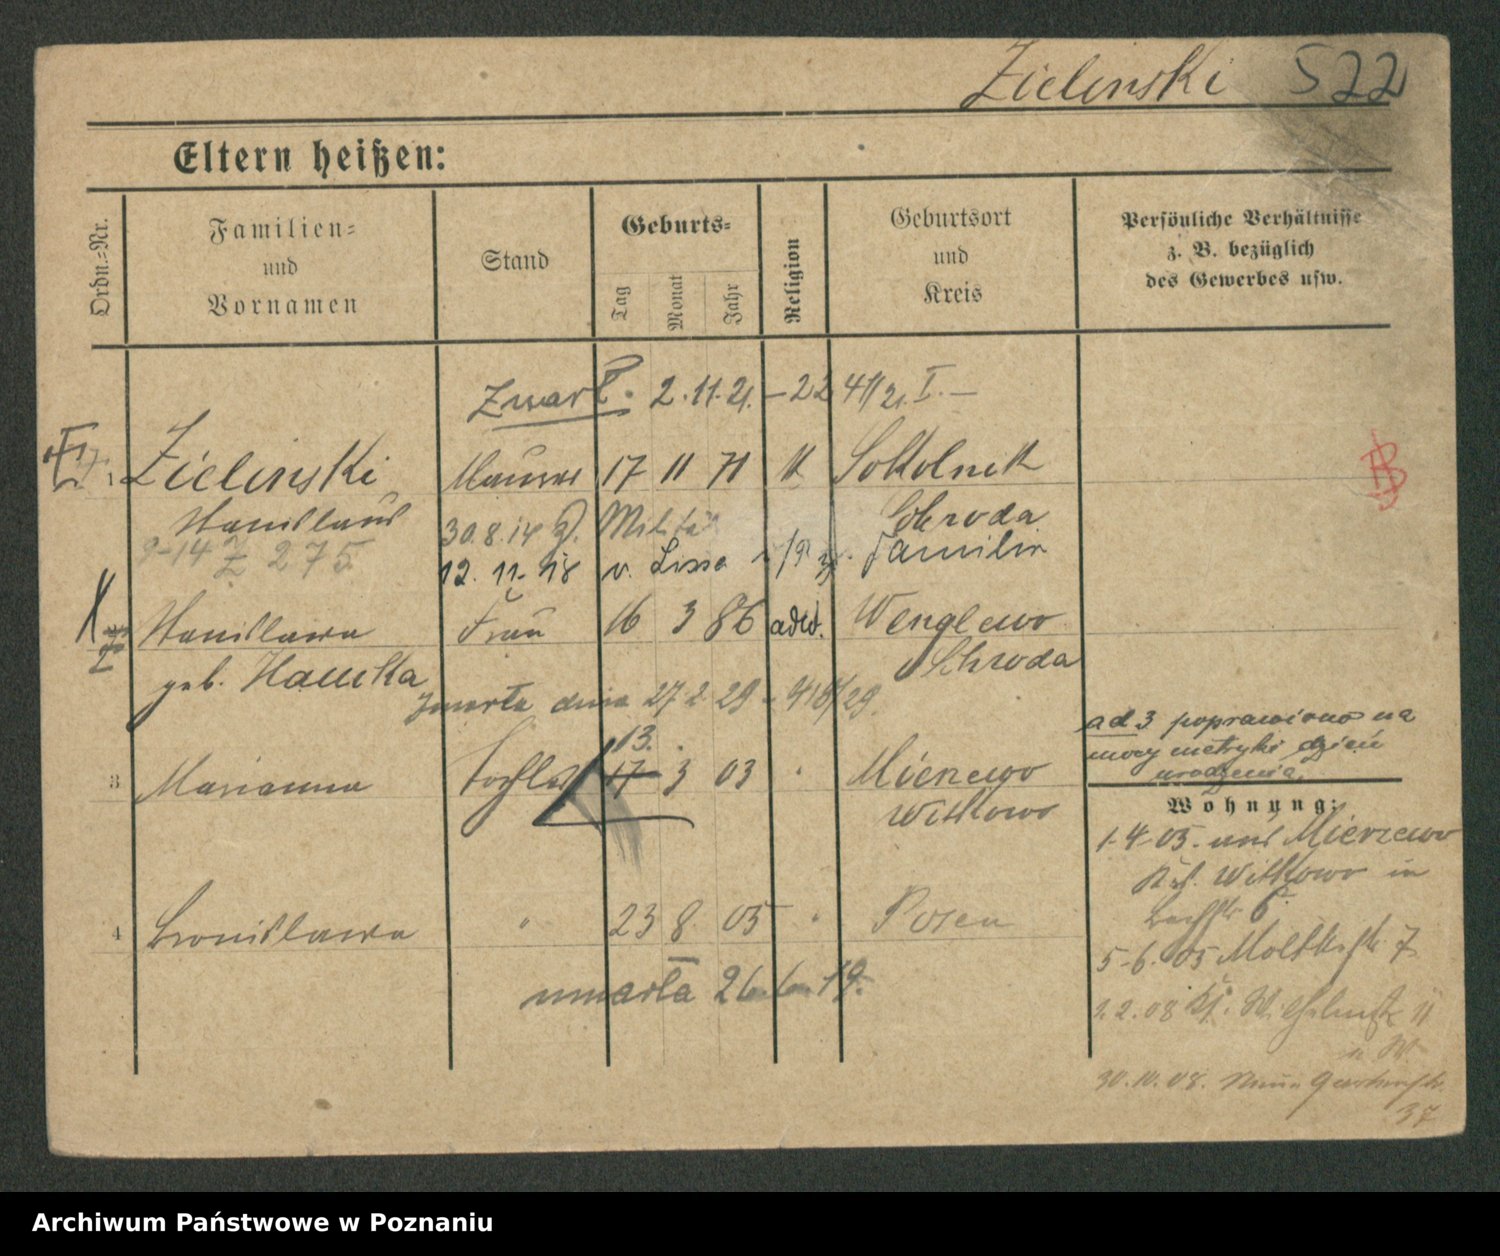 Zielinski 522
Eltern heißen:
Ordn.=Nr.
Familien=
und
Vornamen
Stand
Geburts=
Tag
Monat
Jahr
Religion
Geburtsort
und
Kreis
Persönliche Verhältnisse
z. B. bezüglich
des Gewerbes usw.
2.11.21. – 22
1 Zielinski Maurer 17 11 71 k Sokolnik
Stanislaus Schroda
30.8.14 Militär
9-14 Z 275
12. 11. 18 v. Lissa Familie
2 Stanislawa Frau 16 3 86 Wenglewo
geb. Schroda
zmarła dnia 27 2 29
13.
3 Marianna Tochter 17 3 03 " Mierzewo
Witkowo
4 Bronislawa " 23 8 05 " Posen
umarła 26. 6. 19.
ad 3 poprawiono na
mocy metryki dzień
urodzenia.
Wohnung:
1-4-05. aus Mierzewo
Witkowo in
5-6. 05 Moltkestr 7
2.2.08
30.10.08. Gartenstr.
37
Archiwum Państwowe w Poznaniu